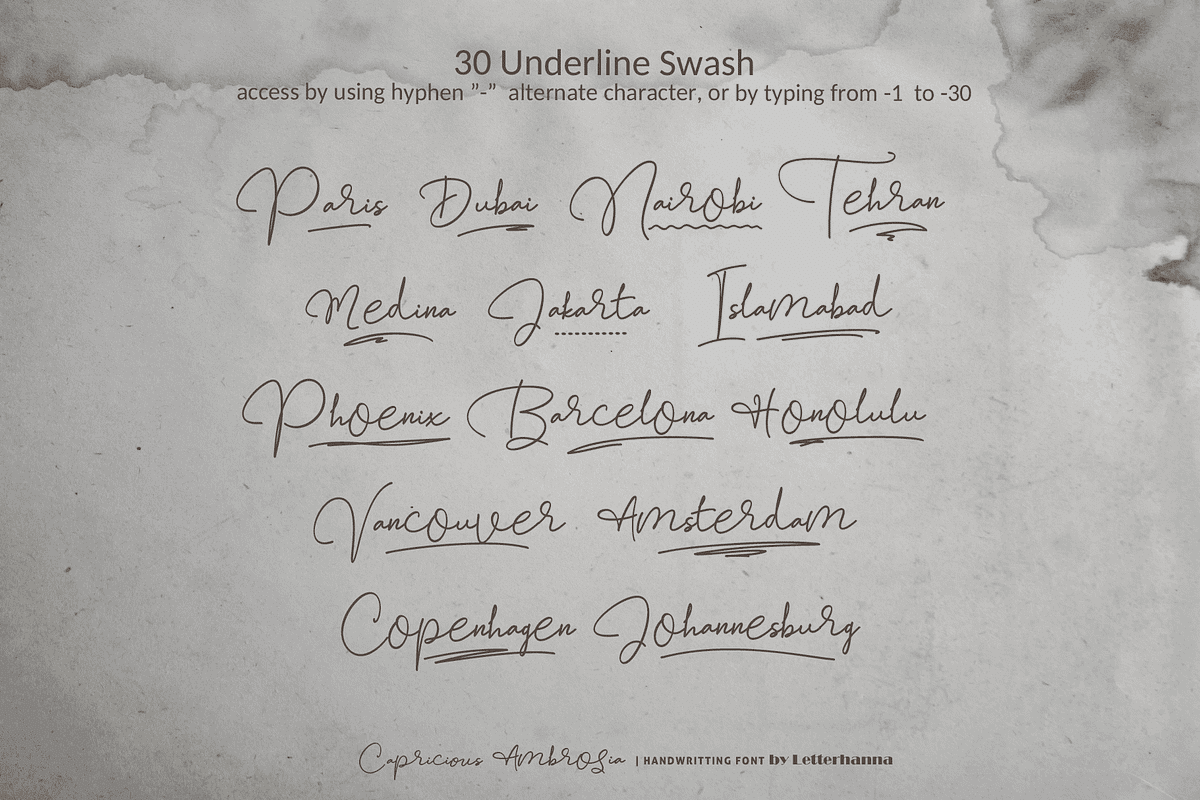 30 Underline Swash
access by using hyphen ”-” alternate character, or by typing from -1 to -30
Paris Dubai Nairobi Tehran
Medina Jakarta Islamabad
Phoenix Barcelona Honolulu
Vancouver Amsterdam
Copenhagen Johannesburg
Capricious Ambrosia | HANDWRITTING FONT by Letterhanna